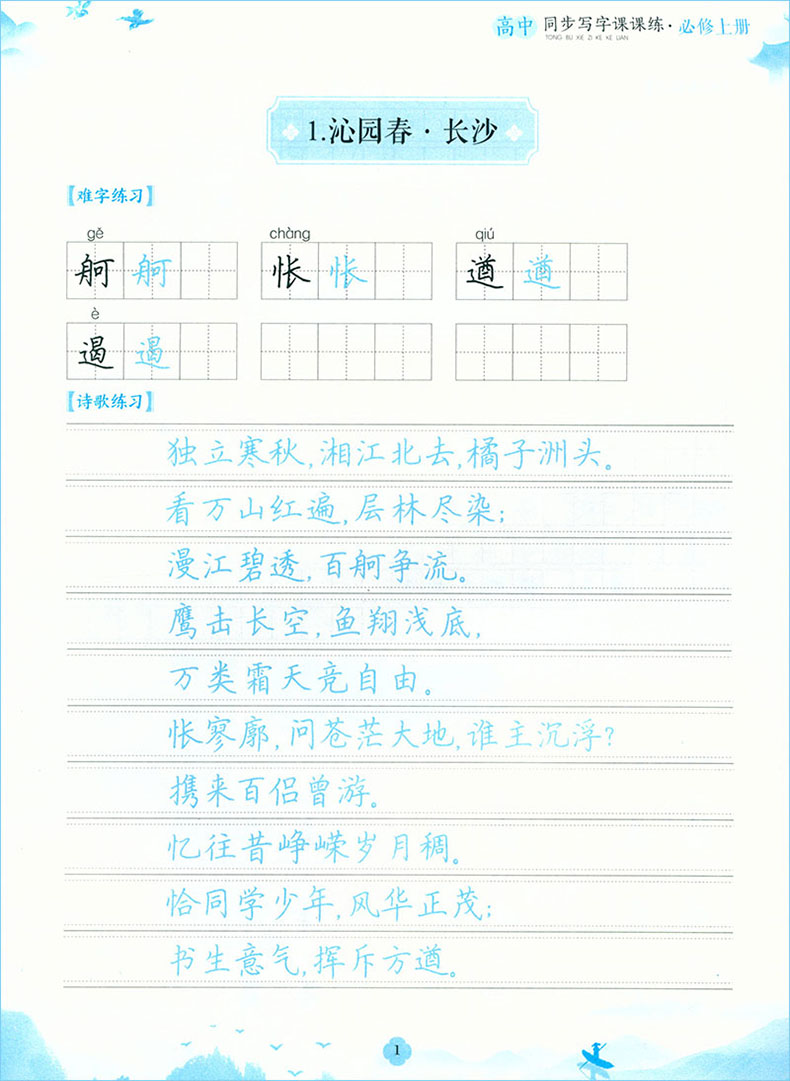 高中 同步写字课课练·必修上册
TONG BU XIE ZI KE KE LIAN
1.沁园春·长沙
【难字练习】
gě chàng qiú
舸 舸 怅 怅 遒 遒
è
遏 遏
【诗歌练习】
独立寒秋,湘江北去,橘子洲头。
看万山红遍,层林尽染;
漫江碧透,百舸争流。
鹰击长空,鱼翔浅底,
万类霜天竞自由。
怅寥廓,问苍茫大地,谁主沉浮?
携来百侣曾游。
忆往昔峥嵘岁月稠。
恰同学少年,风华正茂;
书生意气,挥斥方遒。
1